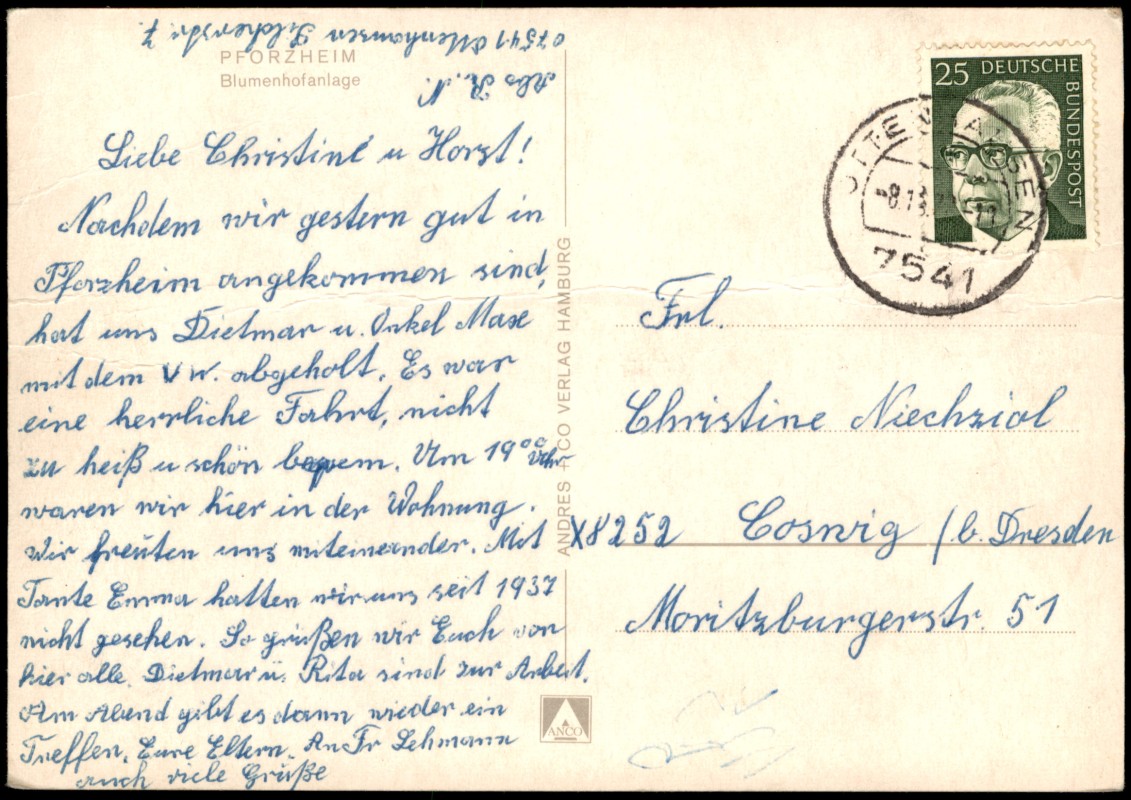 07541 Ottenhausen Silcherstr. 7.
Abs R. N.
PFORZHEIM
Blumenhofanlage
Liebe Christine u Horst!
Nachdem wir gestern gut in
Pforzheim angekommen sind,
hat uns Dietmar u. Onkel Maxe
mit dem VW. abgeholt. Es war
eine herrliche Fahrt, nicht
zu heiß u schön bequem. Um 19⁰⁰ Uhr
waren wir hier in der Wohnung.
Wir freuten uns miteinander. Mit
Tante Emma hatten wir uns seit 1937
nicht gesehen. So grüßen wir Euch von
hier alle. Dietmar u. Rita sind zur Arbeit.
Am Abend gibt es dann wieder ein
Treffen. Eure Eltern. An Fr Lehmann
auch viele Grüße
ANDRES + CO VERLAG HAMBURG
ANCO
25 DEUTSCHE
BUNDESPOST
OTTENHAUSEN
7541
Frl.
Christine Niechziol
X8252 Coswig / b. Dresden
Moritzburgerstr. 51